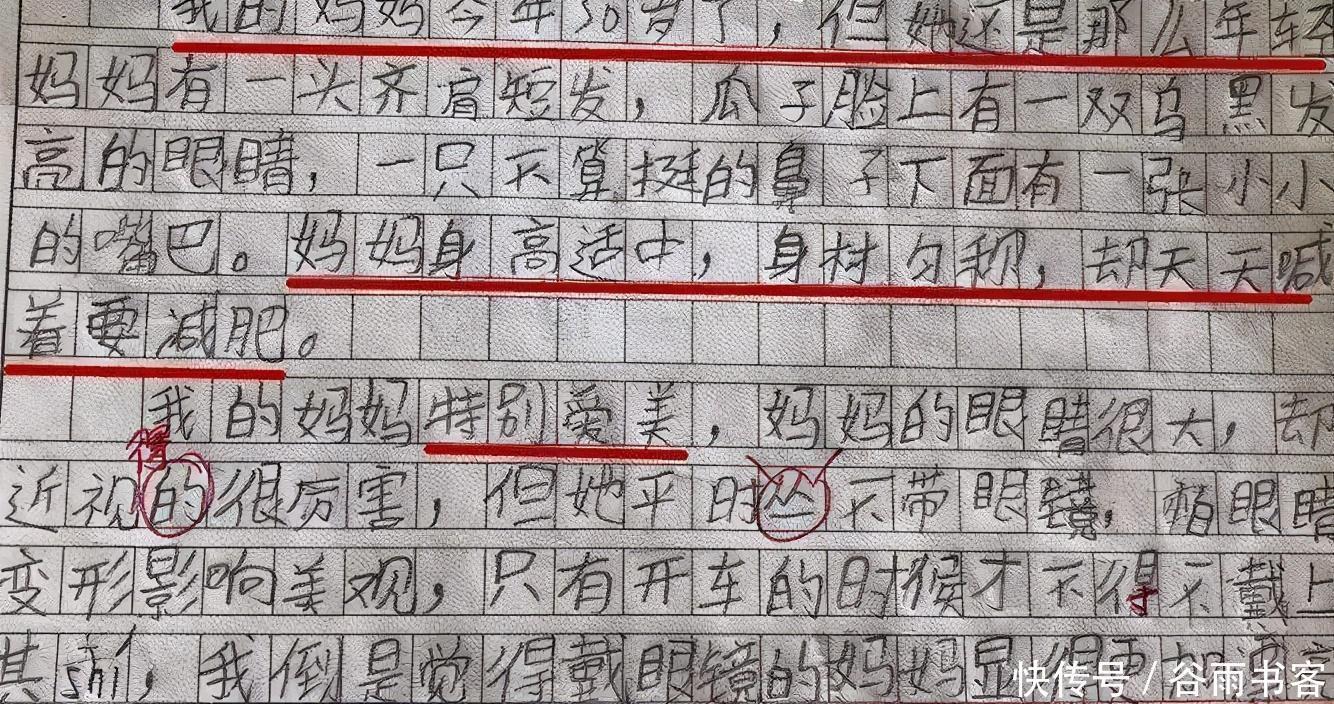 我的妈妈今年30岁了，但她还是那么年轻
妈妈有一头齐肩短发，瓜子脸上有一双乌黑发
高的眼睛，一只不算挺的鼻子下面有一张小小
的嘴巴。妈妈身高适中，身材匀称，却天天喊
着要减肥。
我的妈妈特别爱美，妈妈的眼睛很大，却
得
近视的很厉害，但她平时丛不带眼镜，眼睛
变形影响美观，只有开车的时候才不得不戴上
其shí，我倒是觉得戴眼镜的妈妈显得更加
快传号/谷雨书客